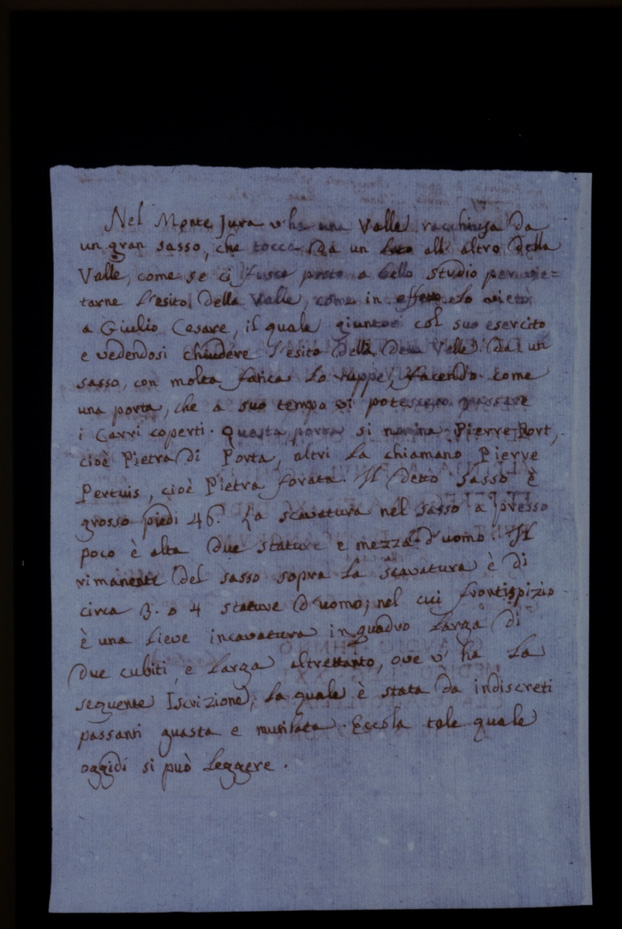 Nel Monte Jura v'ha una Valle racchiusa da
un gran sasso, che tocca da un lato all' altro della
Valle, come se ci fusse posto a bello studio per vie=
tarne l'esito della Valle, come in effetto lo vietò
a Giulio Cesare, il quale giunto col suo esercito
e vedendosi chiudere l'esito della detta Valle da un
sasso, con molta fatica lo ruppe, facendo come
una porta, che a suo tempo vi potessero passare
i Carri coperti. Questa porta si nomina Pierre Port,
cioè Pietra di Porta, altri la chiamano Pierre
Pertuis, cioè Pietra forata. Il detto sasso è
grosso piedi 46. La scavatura nel sasso a presso
poco è alta due stature e mezza d'uomo. Il
rimanente del sasso sopra la scavatura è di
circa 3. o 4 stature d'uomo; nel cui frontispizio
è una lieve incavatura in quadro larga di
due cubiti, e larga altrettanto, ove v'ha la
seguente Iscrizione, la quale è stata da indiscreti
passanti guasta e mutilata. Eccola tale quale
oggidì si può leggere.